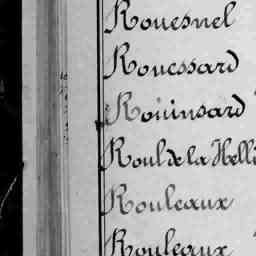 Rouesnel
Rouessard
Rouinsard
Roul de la Helli
Rouleaux
Rouleaux